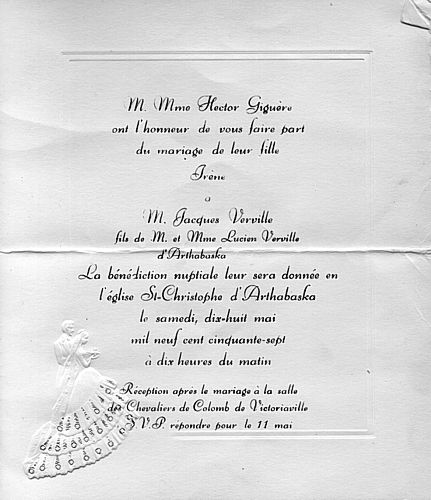 M. Mme Hector Giguère
ont l'honneur de vous faire part
du mariage de leur fille
Irène
à
M. Jacques Verville
fils de M. et Mme Lucien Verville
d'Arthabaska
La bénédiction nuptiale leur sera donnée en
l'église St-Christophe d'Arthabaska
le samedi, dix-huit mai
mil neuf cent cinquante-sept
à dix heures du matin
Réception après le mariage à la salle
des Chevaliers de Colomb de Victoriaville
S.V.P. répondre pour le 11 mai